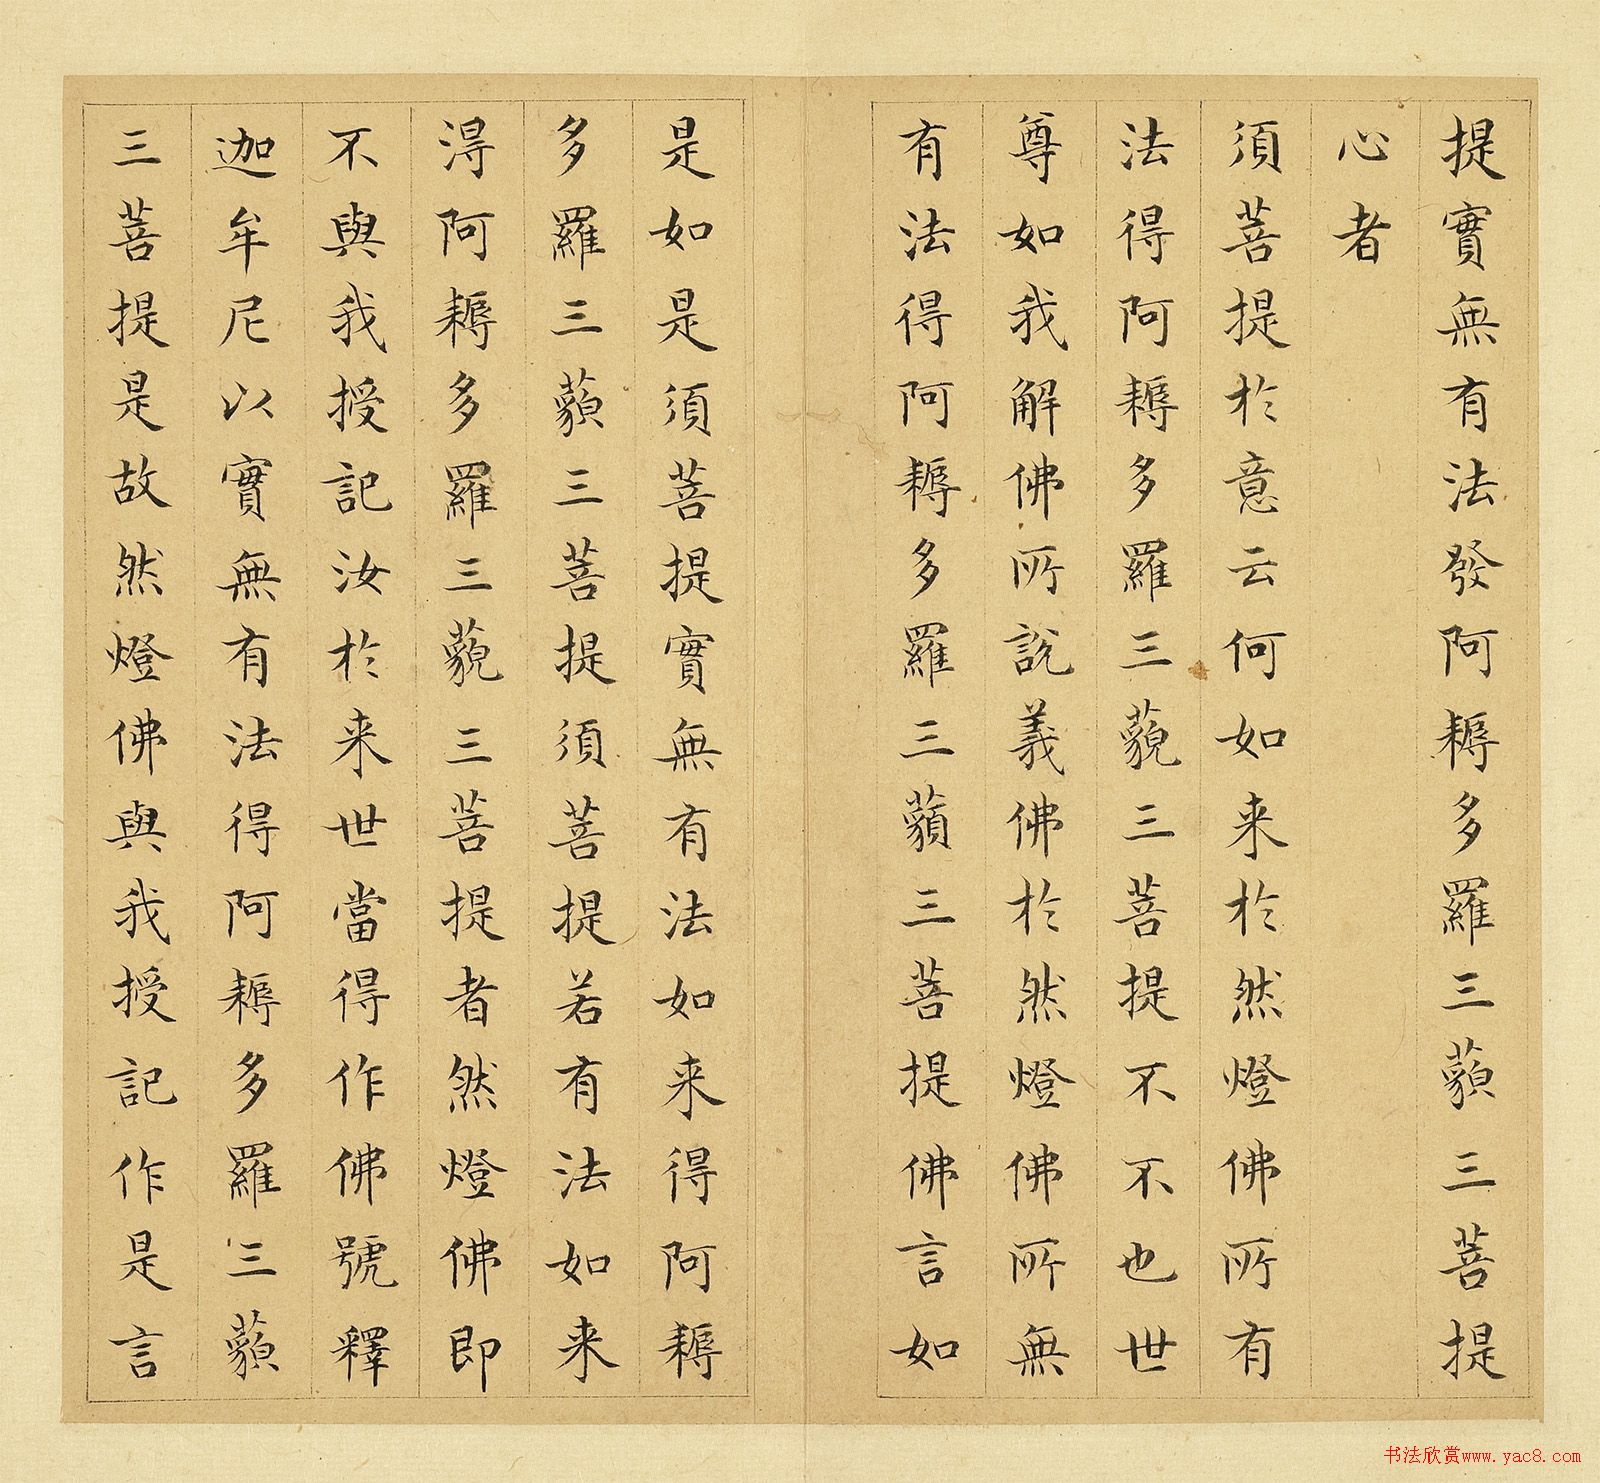 提實無有法發阿耨多羅三藐三菩提
心者
須菩提於意云何如来於然燈佛所有
法得阿耨多羅三藐三菩提不不也世
尊如我解佛所說義佛於然燈佛所無
有法得阿耨多羅三藐三菩提佛言如
是如是須菩提實無有法如来得阿耨
多羅三藐三菩提須菩提若有法如来
淂阿耨多羅三藐三菩提者然燈佛即
不與我授記汝於来世當得作佛號釋
迦牟尼以實無有法得阿耨多羅三藐
三菩提是故然燈佛與我授記作是言
书法欣赏www.yac8.com